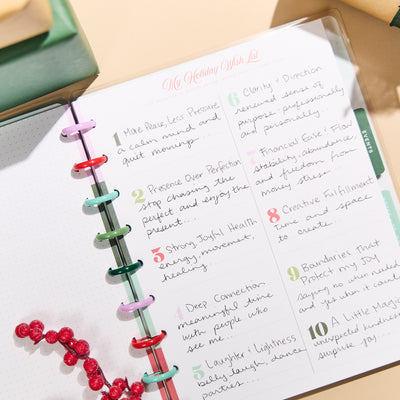 My Holiday Wish List
1 More Peace, Less Pressure
a calm mind and
quiet mornings...
2 Presence Over Perfection
stop chasing the
perfect and enjoy the
present...
3 Strong Joyful Health
energy, movement,
healing.
4 Deep Connection
meaningful time
with people who
see me...
5 Laughter & Lightness
belly laugh, dance
parties...
6 Clarity & Direction
renewed sense of
purpose, professionally
and personally.
7 Financial Ease & Flow
stability, abundance
and freedom from
money stress.
8 Creative Fulfillment
time and space
to create.
9 Boundaries That
Protect my Joy
saying no when needed
and yes when it counts
10 A Little Magic
unexpected kindness
surprise joy...
EVENTS